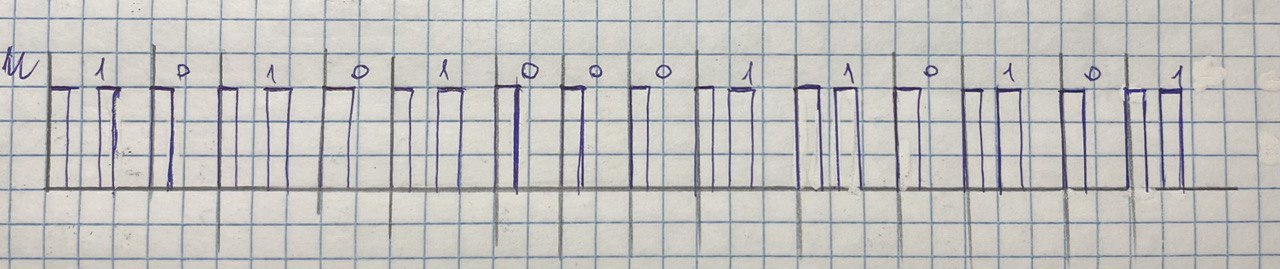 U 1 0 1 0 1 0 0 0 1 1 0 1 0 1